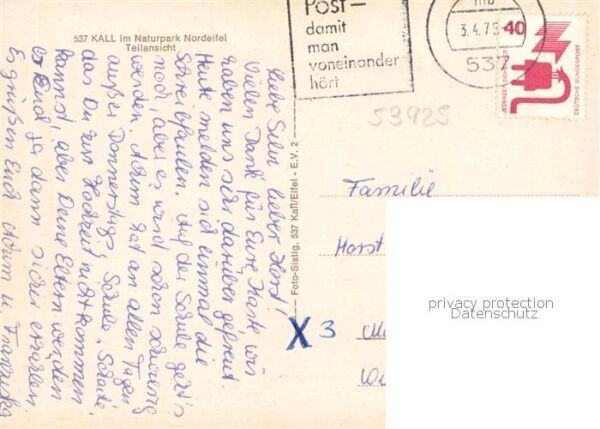 537 KALL im Naturpark Nordeifel
Teilansicht
Post-
damit
man
voneinander
hört
3.4.75
537
40
JEDERZEIT SICHERHEIT
DEUTSCHE BUNDESPOST
53925
Liebe Silvi, lieber Horst!
Vielen Dank für Eure Karte, wir
haben uns sehr darüber gefreut.
Heute melden sich einmal die
Schreibfaulen. Auf der Schule geht's
noch, aber es wird schon schwierig
werden. Achim hat an allen Tagen
außer Donnerstags Schule. Schade,
das Du zur Hochzeit nicht kommen
kannst, aber Deine Eltern werden
es Euch ja dann sicher erzählen.
Es grüßen Euch Achim u. Franziska
Foto-Sistig, 537 Kall/Eifel - E.V. 2
Familie
Horst
X 3
privacy protection
Datenschutz